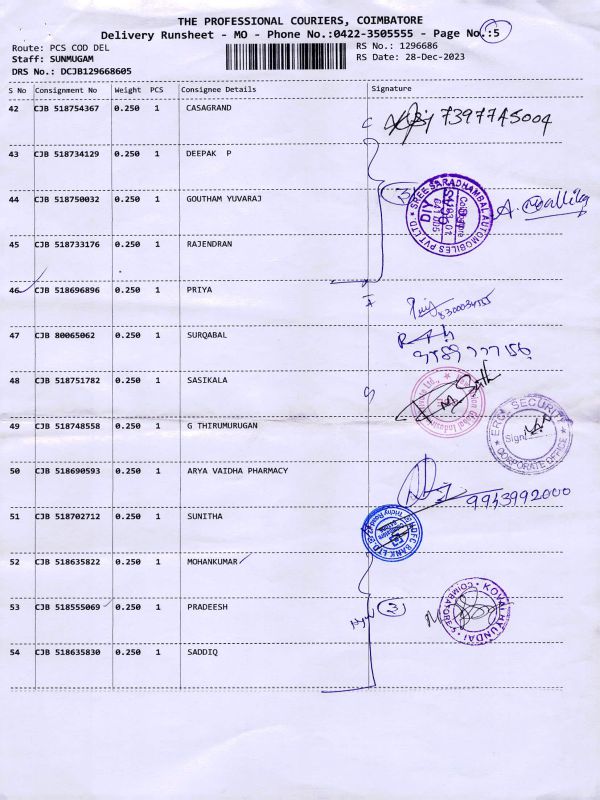 THE PROFESSIONAL COURIERS, COIMBATORE
Delivery Runsheet - MO - Phone No.:0422-3505555 - Page No.:5
Route: PCS COD DEL
RS No.: 1296686
Staff: SUNMUGAM
RS Date: 28-Dec-2023
DRS No.: DCJB129668605
S No Consignment No Weight PCS Consignee Details Signature
42 CJB 518754367 0.250 1 CASAGRAND 7397745004
43 CJB 518734129 0.250 1 DEEPAK P
44 CJB 518750032 0.250 1 GOUTHAM YUVARAJ
3
SREE SARADHAMBAL AUTOMOBILES PVT LTD.
45 CJB 518733176 0.250 1 RAJENDRAN
46 CJB 518696896 0.250 1 PRIYA
47 CJB 80065062 0.250 1 SURQABAL
48 CJB 518751782 0.250 1 SASIKALA
49 CJB 518748558 0.250 1 G THIRUMURUGAN
SECURITY
Sign
CORPORATE OFFICE
50 CJB 518690593 0.250 1 ARYA VAIDHA PHARMACY
9943992000
51 CJB 518702712 0.250 1 SUNITHA
HDFC BANK LTD.
52 CJB 518635822 0.250 1 MOHANKUMAR
53 CJB 518555069 0.250 1 PRADEESH
3
KOVAI HYUNDAI
COIMBATORE
54 CJB 518635830 0.250 1 SADDIQ